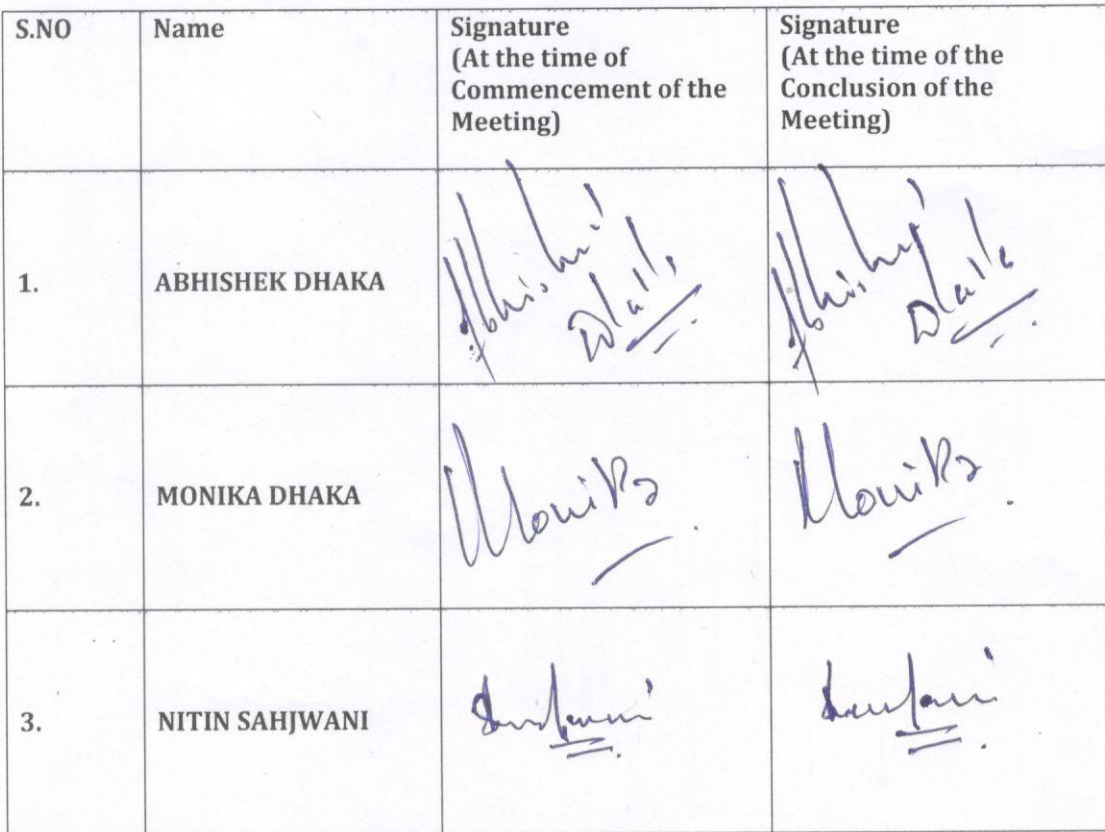 S.NO
Name
Signature
(At the time of
Commencement of the
Meeting)
Signature
(At the time of the
Conclusion of the
Meeting)
1.
ABHISHEK DHAKA
2.
MONIKA DHAKA
Monika
Monika
3.
NITIN SAHJWANI